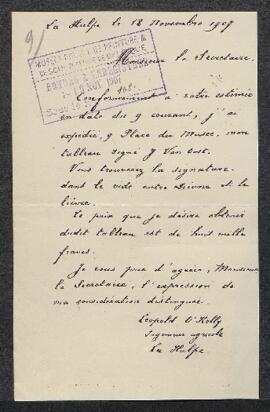 La Hulpe le 18 Novembre 1907
9/
MUSÉES DE PEINTURE &
DE SCULPTURE DE BELGIQUE
ENTRÉE
NOV 190
Monsieur le Secrétaire.
Conformément à votre estimée
en date du 9 courant, j'ai
expédié, 9 Place du Musée, mon
tableau signé J Van Oost.
Vous trouverez la signature
dans le vide entre Divona et la
lièvre.
Le prix que je désire obtenir
dudit tableau est de huit mille
francs.
Je vous prie d'agréer, Monsieur
le Secrétaire, l'expression de
ma considération distinguée.
Leopold O'Kelly
Ingénieur agricole
La Hulpe